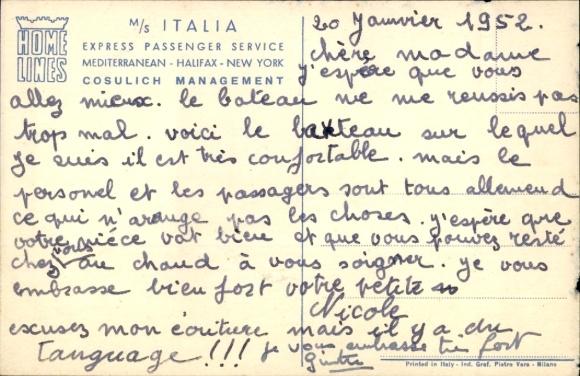 HOME
LINES
M/S ITALIA
EXPRESS PASSENGER SERVICE
MEDITERRANEAN - HALIFAX - NEW YORK
COSULICH MANAGEMENT
20 Janvier 1952.
chère madame
j'espère que vous
allez mieux. le bateau ne me reussis pas
trop mal. voici le bateau sur lequel
je suis il est très confortable. mais le
personel et les passagers sont tous allemend
ce qui n'arange pas les choses. j'espère que
votre niéce vat bien et que vous pouvez resté
chez vous au chaud à vous soigner. je vous
embrasse bien fort votre petite
Nicole
excusez mon écriture mais il y a du
tanguage!!! je vous embrasse très fort
Printed in Italy - Ind. Graf. Pietro Vera - Milano